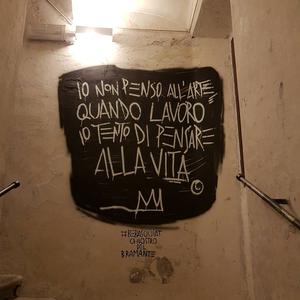 IO NON PENSO ALL'ARTE
QUANDO LAVORO
IO TENTO DI PENSARE
ALLA VITA
©
#BEBASQUIAT
CHIOSTRO
DEL
BRAMANTE